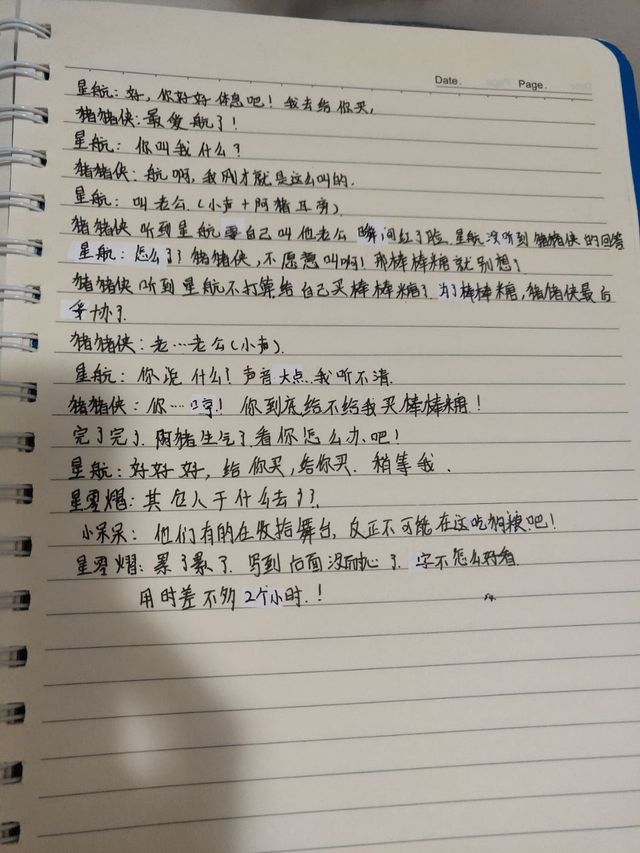 Date. Page.
星航：好，你好好休息吧！我去给你买，
猪猪侠：最爱航了！
星航：你叫我什么？
猪猪侠：航啊，我刚才就是这么叫的.
星航：叫老公.（小声+阿猪耳旁）
猪猪侠听到星航要自己叫他老公瞬间红了脸.星航没听到猪猪侠的回答
星航：怎么了？猪猪侠，不愿意叫啊！那棒棒糖就别想了
猪猪侠听到星航不打算给自己买棒棒糖了.为了棒棒糖，猪猪侠最后
妥协了.
猪猪侠：老…老公（小声）.
星航：你说什么？声音大点.我听不清.
猪猪侠：你…哼！你到底给不给我买棒棒糖！
完了完了.阿猪生气了.看你怎么办吧！
星航：好好好，给你买，给你买.稍等我.
星翟熠：其他人干什么去了？
小呆呆：他们有的在收拾舞台，反正不可能在这吃狗粮吧！
星翟熠：累了累了.写到后面没耐心了.字不怎么好看.
用时差不多2个小时.！